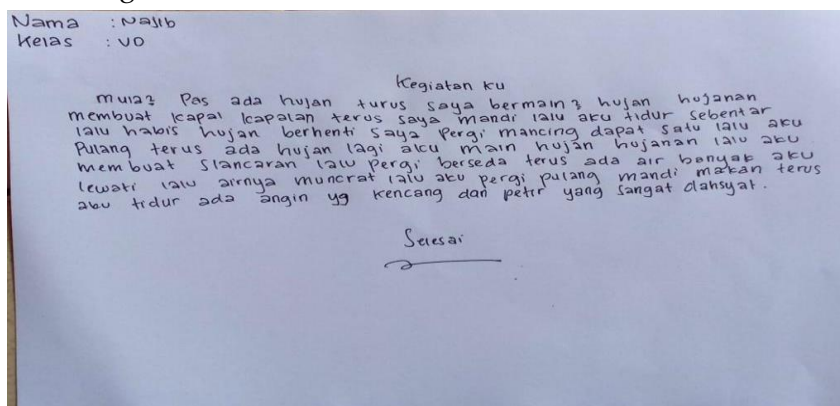 Nama : Najib
Kelas : VD
Kegiatan ku
mula2 Pas ada hujan turus saya bermain2 hujan hujanan
membuat kapal kapalan terus saya mandi lalu aku tidur sebentar
lalu habis hujan berhenti saya Pergi mancing dapat satu lalu aku
Pulang terus ada hujan lagi aku main hujan hujanan lalu aku
membuat Slancaran lalu pergi berseda terus ada air banyak aku
lewati lalu airnya muncrat lalu aku pergi pulang mandi makan terus
abu tidur ada angin yg kencang dan petir yang sangat dahsyat.
Selesai